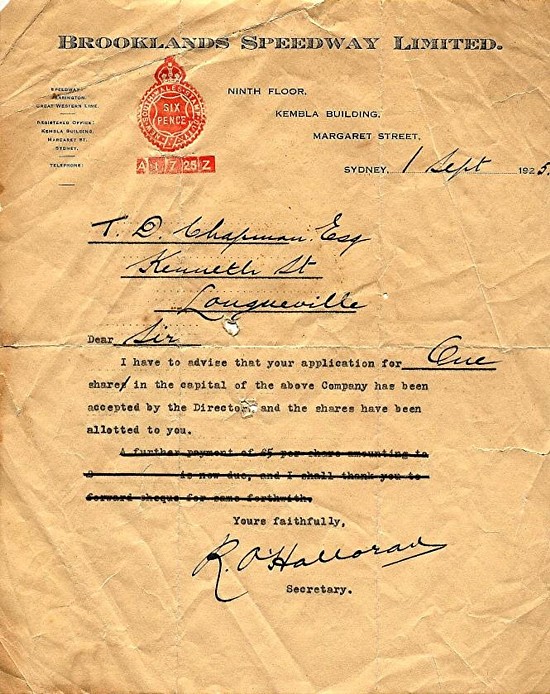 BROOKLANDS SPEEDWAY LIMITED.
SPEEDWAY:
GREAT WESTERN LINE.
REGISTERED OFFICE:
KEMBLA BUILDING,
MARGARET ST.
SYDNEY.
TELEPHONE:
NEW SOUTH WALES STAMP DUTY
SIX
PENCE
A 1 7 25 Z
NINTH FLOOR,
KEMBLA BUILDING,
MARGARET STREET,
SYDNEY, 1 Sept 1925.
T. D. Chapman Esq
Kenneth St
Longueville
Dear Sir
I have to advise that your application for One
shares in the capital of the above Company has been
accepted by the Directors and the shares have been
allotted to you.
A further payment of £5 per share amounting to
£ is now due, and I shall thank you to
forward cheque for same forthwith.
Yours faithfully,
R. O'Halloran
Secretary.